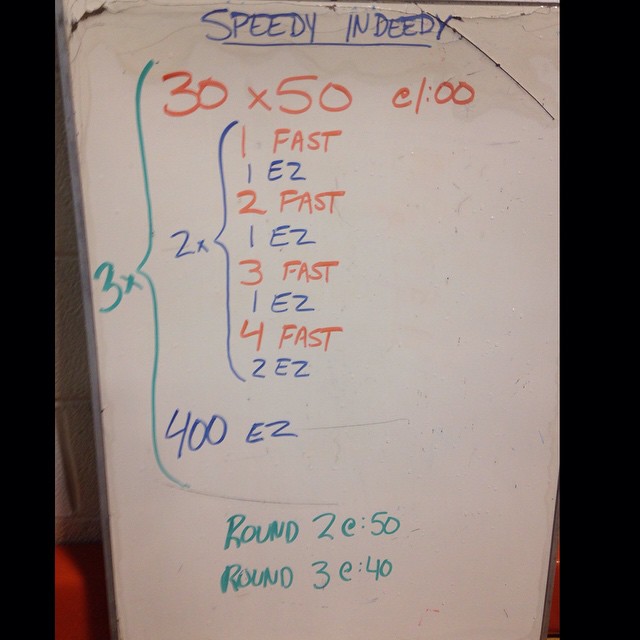 SPEEDY INDEEDY
30 x 50 @ 1:00
1 FAST
1 EZ
2 FAST
2x 1 EZ
3x 3 FAST
1 EZ
4 FAST
2 EZ
400 EZ
ROUND 2 @ :50
ROUND 3 @ :40